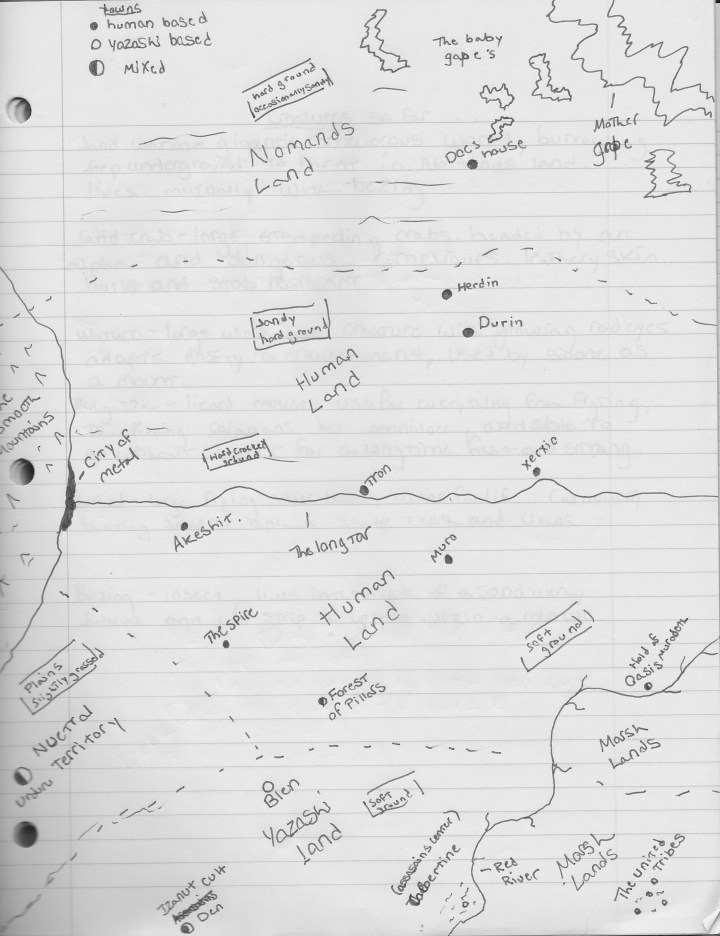 towns
human based
Yazashi based
Mixed
The baby
gape's
Mother
gape
hard ground
occasionally sandy
Nomands
Land
Docs
house
Herdin
Durin
Sandy
hard ground
Human
Land
smooth
Mountains
City of
metal
Hard cracked
ground
Tron
Xerxio
Akeshit.
The langtar
Muro
Human
Land
The Spire
soft
ground
Hold of
Oasis Muradoth
Plains
Slightly grassed
Forest
of Pillars
Nuetral
Territory
Unduru
Marsh
Lands
Blen
Yazashi
Land
soft
ground
(assasains center)
Red
River
Marsh
Lands
The United
Tribes
Izanut Cult
Den